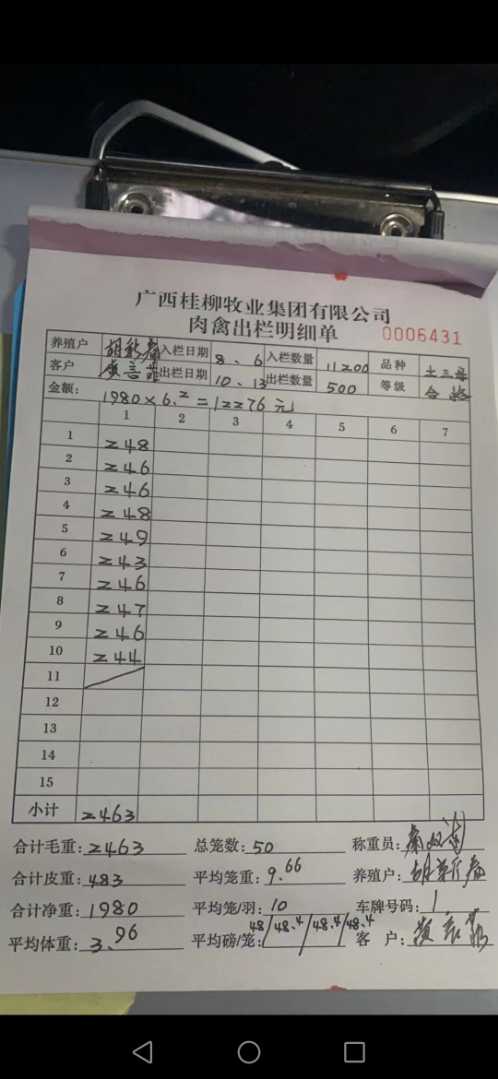 广西桂柳牧业集团有限公司
肉禽出栏明细单 0006431
养殖户 入栏日期 8、6 入栏数量 11200 品种 土三母
客户 出栏日期 10、13 出栏数量 500 等级 合格
金额: 1980×6.2=12276元
1 2 3 4 5 6 7
1 248
2 246
3 246
4 248
5 249
6 243
7 246
8 247
9 246
10 244
11
12
13
14
15
小计 2463
合计毛重: 2463 总笼数: 50 称重员:
合计皮重: 483 平均笼重: 9.66 养殖户:
合计净重: 1980 平均笼/羽: 10 车牌号码: 1
平均体重: 3.96 平均磅/笼: 48/48.4/48.4/48.4 客 户: